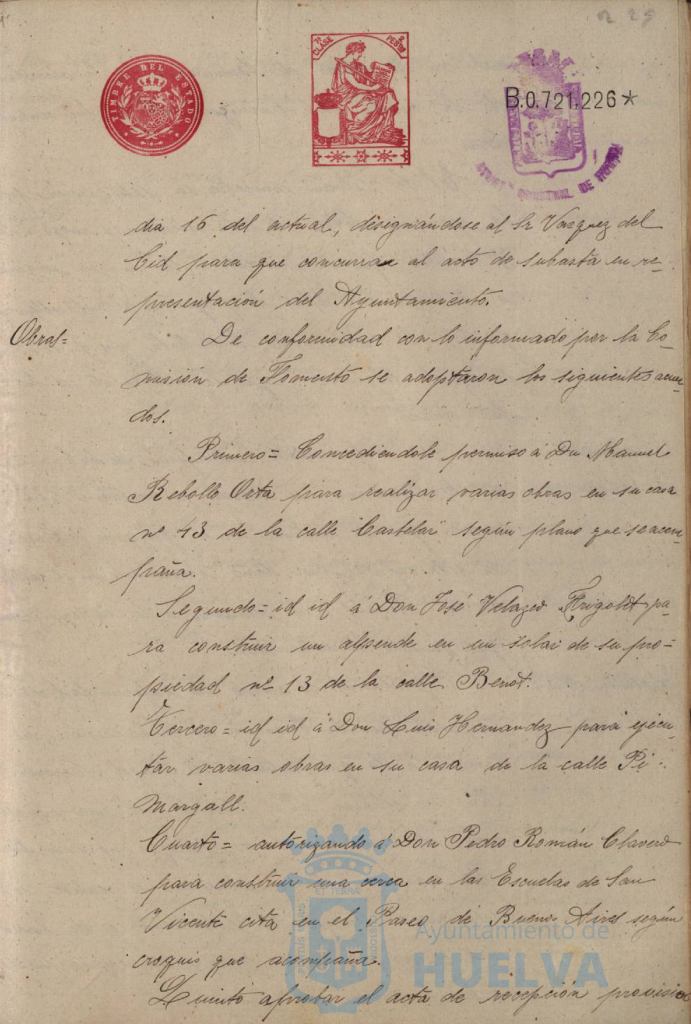 225
TIMBRE DEL ESTADO
7ª CLASE
2 PESETAS
B.0.721,226*
dia 16 del actual, designándose al Sr Vazquez del
Cid para que concurran al acto de subasta en re-
presentación del Ayuntamiento.
Obras=
De conformidad con lo informado por la Co-
misión de Fomento se adoptaron los siguientes acuer-
dos.
Primero= Concediendole permiso á Dn Manuel
Rebollo Orta para realizar varias obras en su casa
nº 43 de la calle Castelar según plano que se acom-
paña.
Segundo= id id á Don José Velazco Frigolet pa-
ra construir un alpende en un solar de su pro=
piedad nº 13 de la calle Benot.
Tercero= id id á Don Luis Hernandez para ejecu-
tar varias obras en su casa de la calle Pi-
Margall.
Cuarto= autorizando á Don Pedro Román Clavero
para construir una cerca en las Escuelas de San
Vicente cita en el Paseo de Buenos Aires según
croquis que acompaña.
Quinto aprobar el acta de recepción provisio
Ayuntamiento de
HUELVA